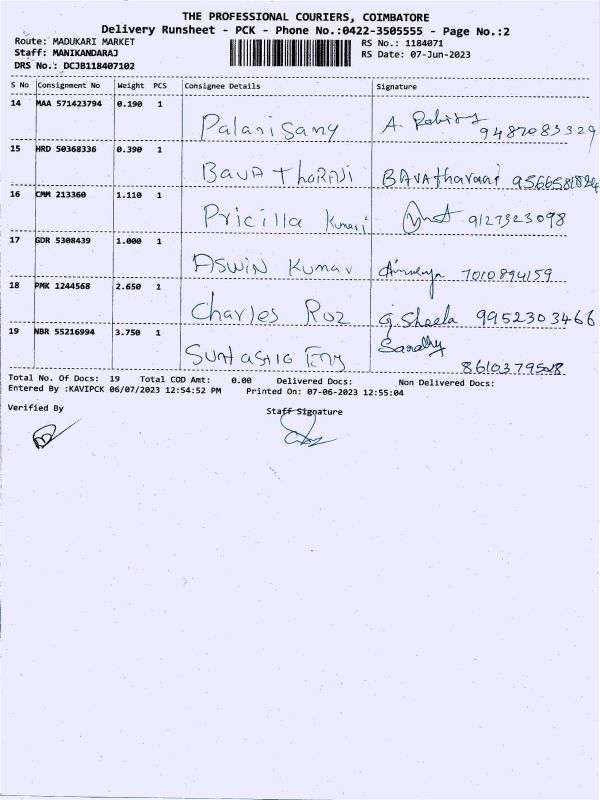 THE PROFESSIONAL COURIERS, COIMBATORE
Delivery Runsheet - PCK - Phone No.:0422-3505555 - Page No.:2
Route: MADUKARI MARKET RS No.: 1184071
Staff: MANIKANDARAJ RS Date: 07-Jun-2023
DRS No.: DCJB118407102
S No Consignment No Weight PCS Consignee Details Signature
14 MAA 571423794 0.190 1 Palanisamy A. 9487083329
15 HRD 50368336 0.390 1 BavaTharani Bavatharani
16 CMM 213360 1.110 1 Pricilla Kumari 9127323098
17 GDR 5308439 1.000 1 Aswin Kumar 7010894159
18 PMK 1244568 2.650 1 Charles Roz G Sheela 9952303466
19 NBR 55216994 3.750 1
Total No. Of Docs: 19 Total COD Amt: 0.00 Delivered Docs: Non Delivered Docs:
Entered By :KAVIPCK 06/07/2023 12:54:52 PM Printed On: 07-06-2023 12:55:04
Verified By Staff Signature